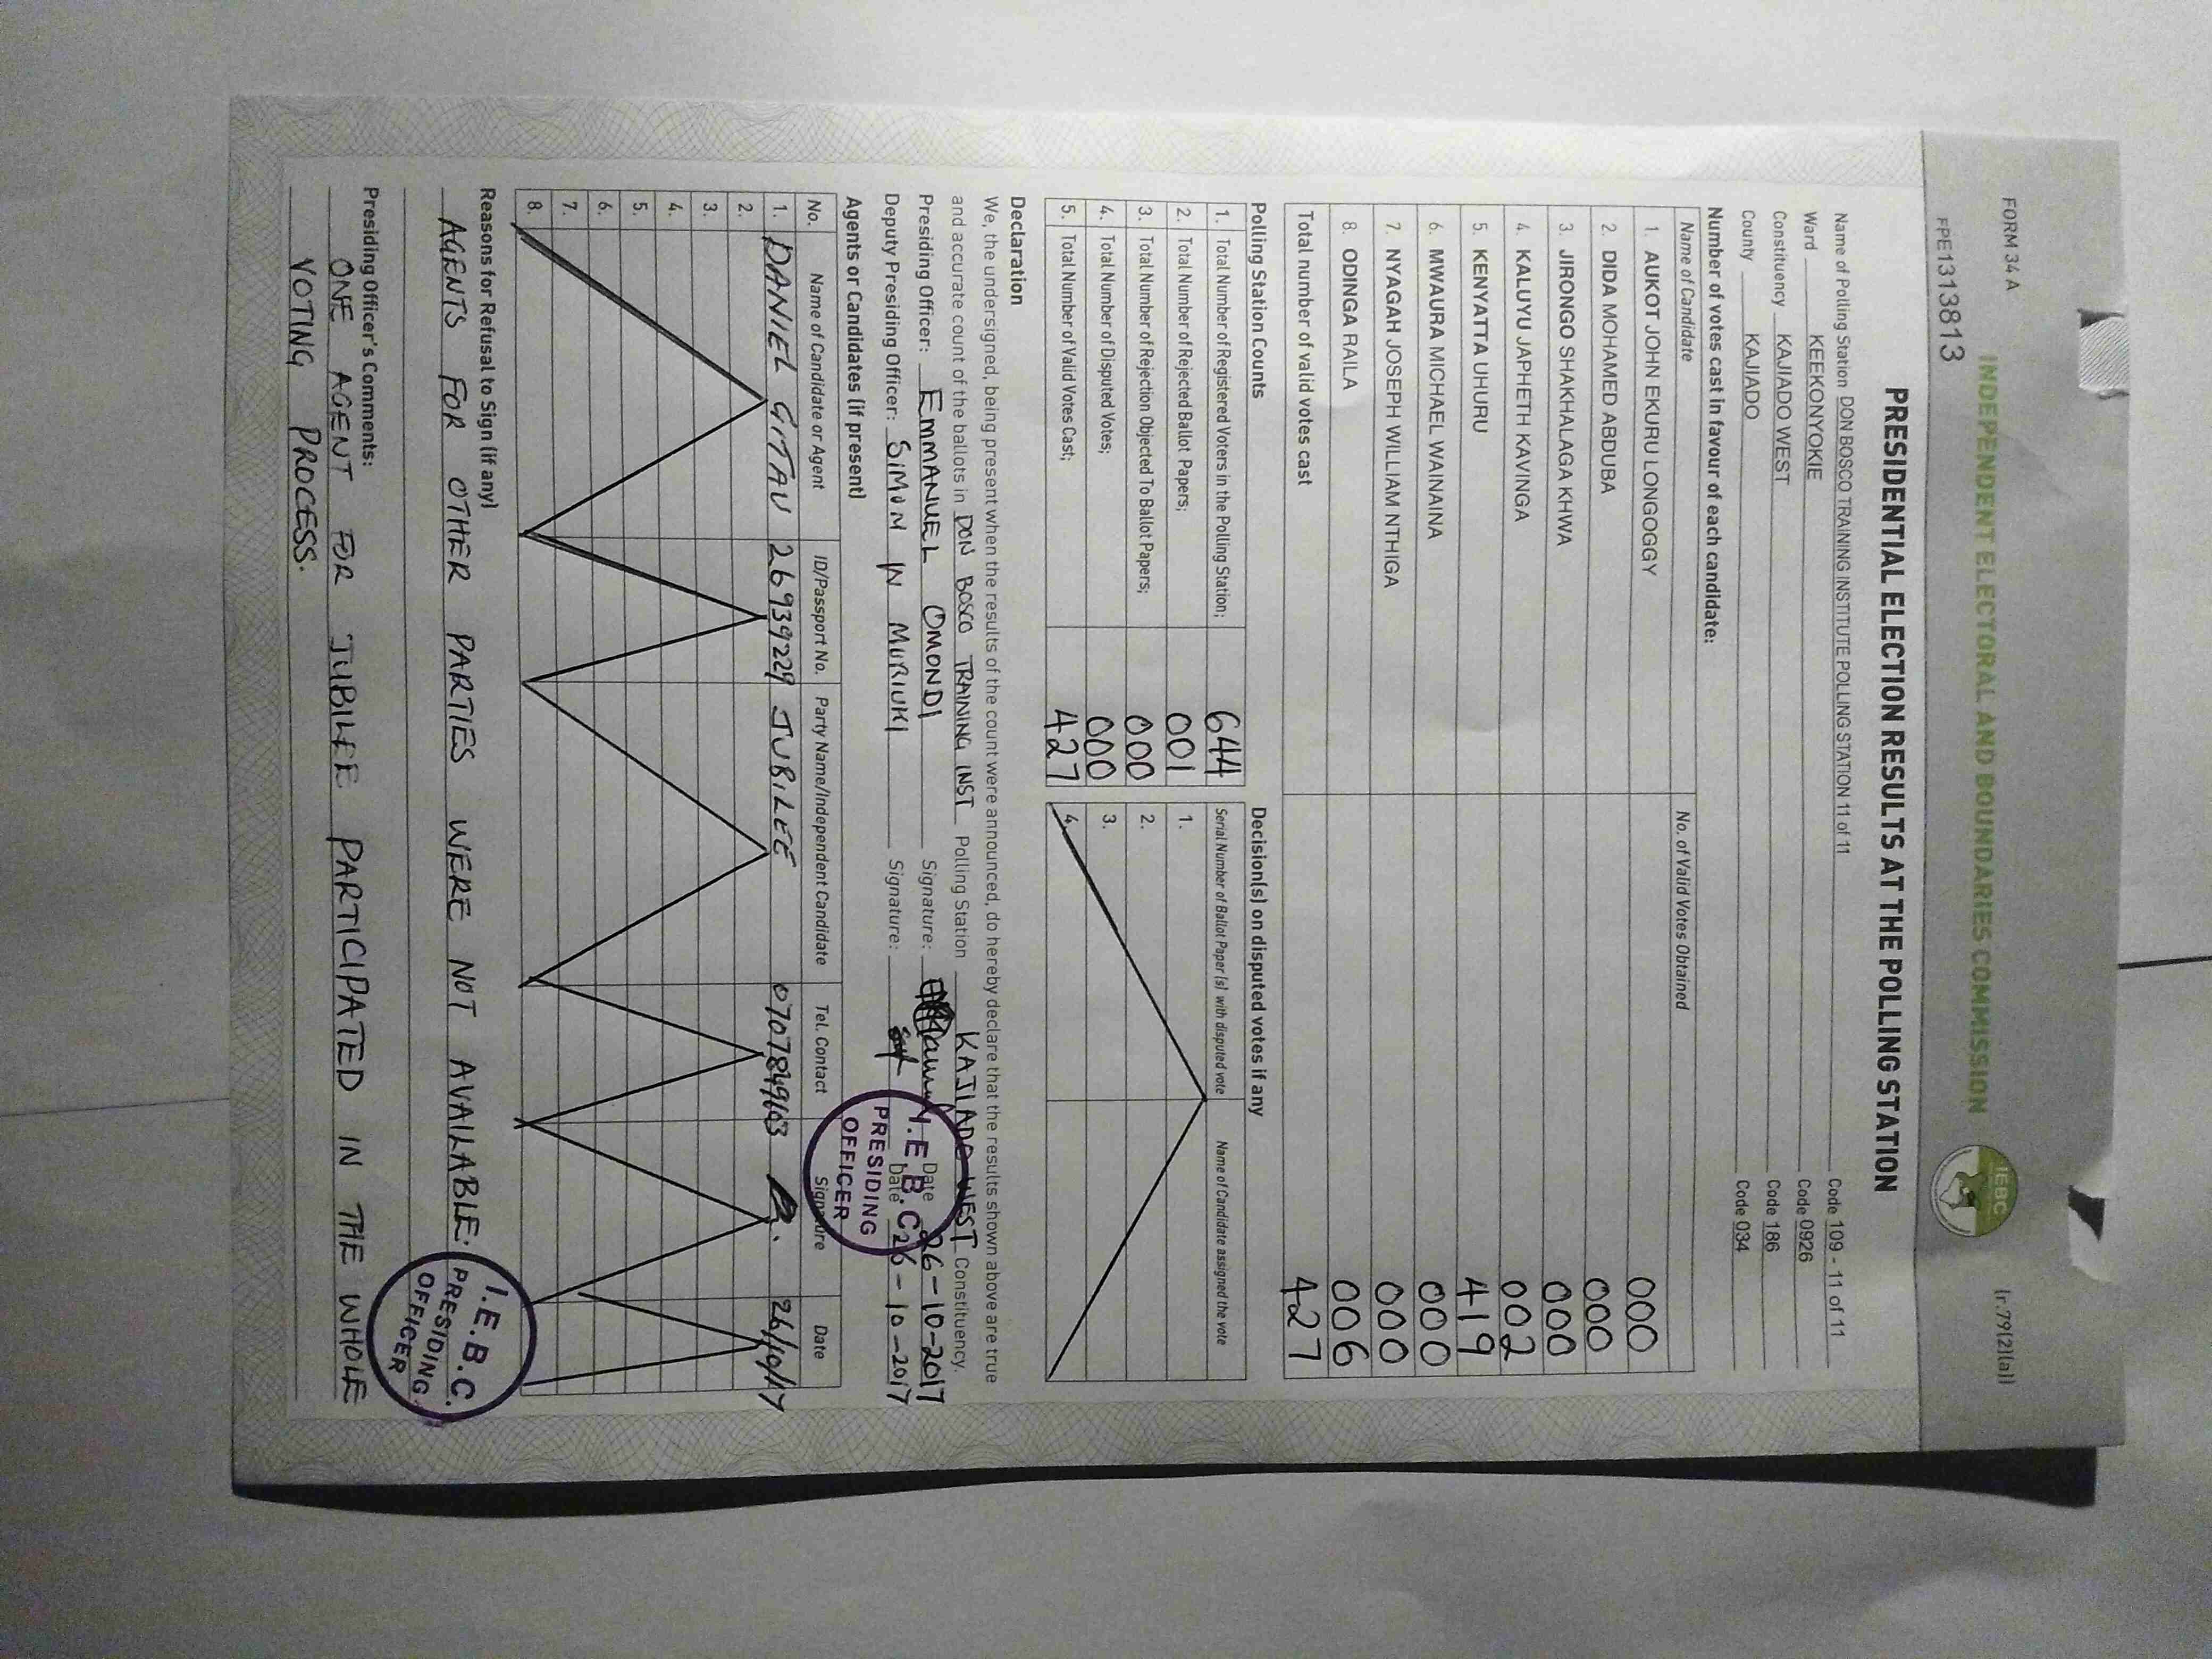 FORM 34 A
(r.79(2)(a))
INDEPENDENT ELECTORAL AND BOUNDARIES COMMISSION
IEBC
FPE1313813
PRESIDENTIAL ELECTION RESULTS AT THE POLLING STATION
Name of Polling Station DON BOSCO TRAINING INSTITUTE POLLING STATION 11 of 11 Code 109 - 11 of 11
Ward KEEKONYOKIE Code 0926
Constituency KAJIADO WEST Code 186
County KAJIADO Code 034
Number of votes cast in favour of each candidate:
Name of Candidate No. of Valid Votes Obtained
1. AUKOT JOHN EKURU LONGOGGY 000
2. DIDA MOHAMED ABDUBA 000
3. JIRONGO SHAKHALAGA KHWA 000
4. KALUYU JAPHETH KAVINGA 002
5. KENYATTA UHURU 419
6. MWAURA MICHAEL WAINAINA 000
7. NYAGAH JOSEPH WILLIAM NTHIGA 000
8. ODINGA RAILA 006
Total number of valid votes cast 427
Polling Station Counts Decision(s) on disputed votes if any
1. Total Number of Registered Voters in the Polling Station; 644 Serial Number of Ballot Paper (s) with disputed vote Name of Candidate assigned the vote
2. Total Number of Rejected Ballot Papers; 001 1.
3. Total Number of Rejection Objected To Ballot Papers; 000 2.
4. Total Number of Disputed Votes; 000 3.
5. Total Number of Valid Votes Cast; 427 4.
Declaration
We, the undersigned, being present when the results of the count were announced, do hereby declare that the results shown above are true
and accurate count of the ballots in DON BOSCO TRAINING INST Polling Station KAJIADO WEST Constituency.
Presiding Officer: EMMANUEL OMONDI Signature: Date 26-10-2017
Deputy Presiding Officer: SIMON N MURIUKI Signature: Date 26-10-2017
I.E.B.C
PRESIDING
OFFICER
Agents or Candidates (if present)
No. Name of Candidate or Agent ID/Passport No. Party Name/Independent Candidate Tel. Contact Signature Date
1. DANIEL GITAU 26939229 JUBILEE 0707849163 26/10/17
2.
3.
4.
5.
6.
7.
8.
Reasons for Refusal to Sign (if any)
AGENTS FOR OTHER PARTIES WERE NOT AVAILABLE.
I.E.B.C.
PRESIDING
OFFICER
Presiding Officer's Comments:
ONE AGENT FOR JUBILEE PARTICIPATED IN THE WHOLE
VOTING PROCESS.